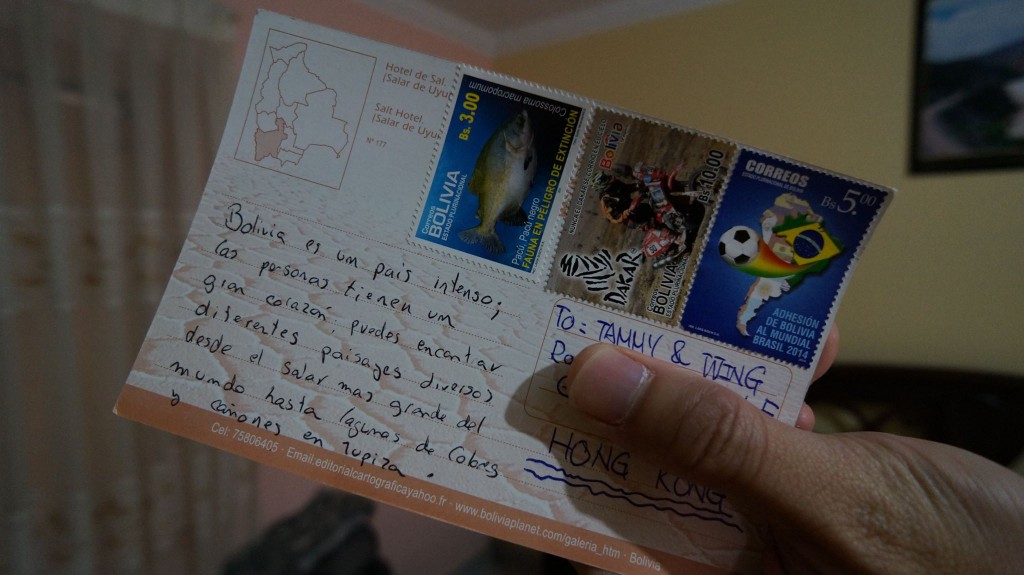 Hotel de Sal
(Salar de Uyu
Salt Hotel
(Salar de Uyu
Nº 177
Bs. 3.00
Colossoma macropomum
Correos
BOLIVIA
ESTADO PLURINACIONAL
Pacú, Pacú negro
FAUNA EN PELIGRO DE EXTINCION
Bolivia
Bs 10.00
DAKAR
Correos
BOLIVIA
CORREOS
Bs 5.00
ADHESIÓN
DE BOLIVIA
AL MUNDIAL
BRASIL 2014
Bolivia es un pais intenso;
las personas tienen un
gran corazón, puedes encontar
diferentes paisages diversos
desde el salar mas grande del
mundo hasta lagunas de Colores
y cañones en Tupiza.
TO: TAMMY & WING
HONG KONG
Cel: 75806405 · Email.editorialcartograficayahoo.fr · www.boliviaplanet.com/galeria_htm · Bolivia